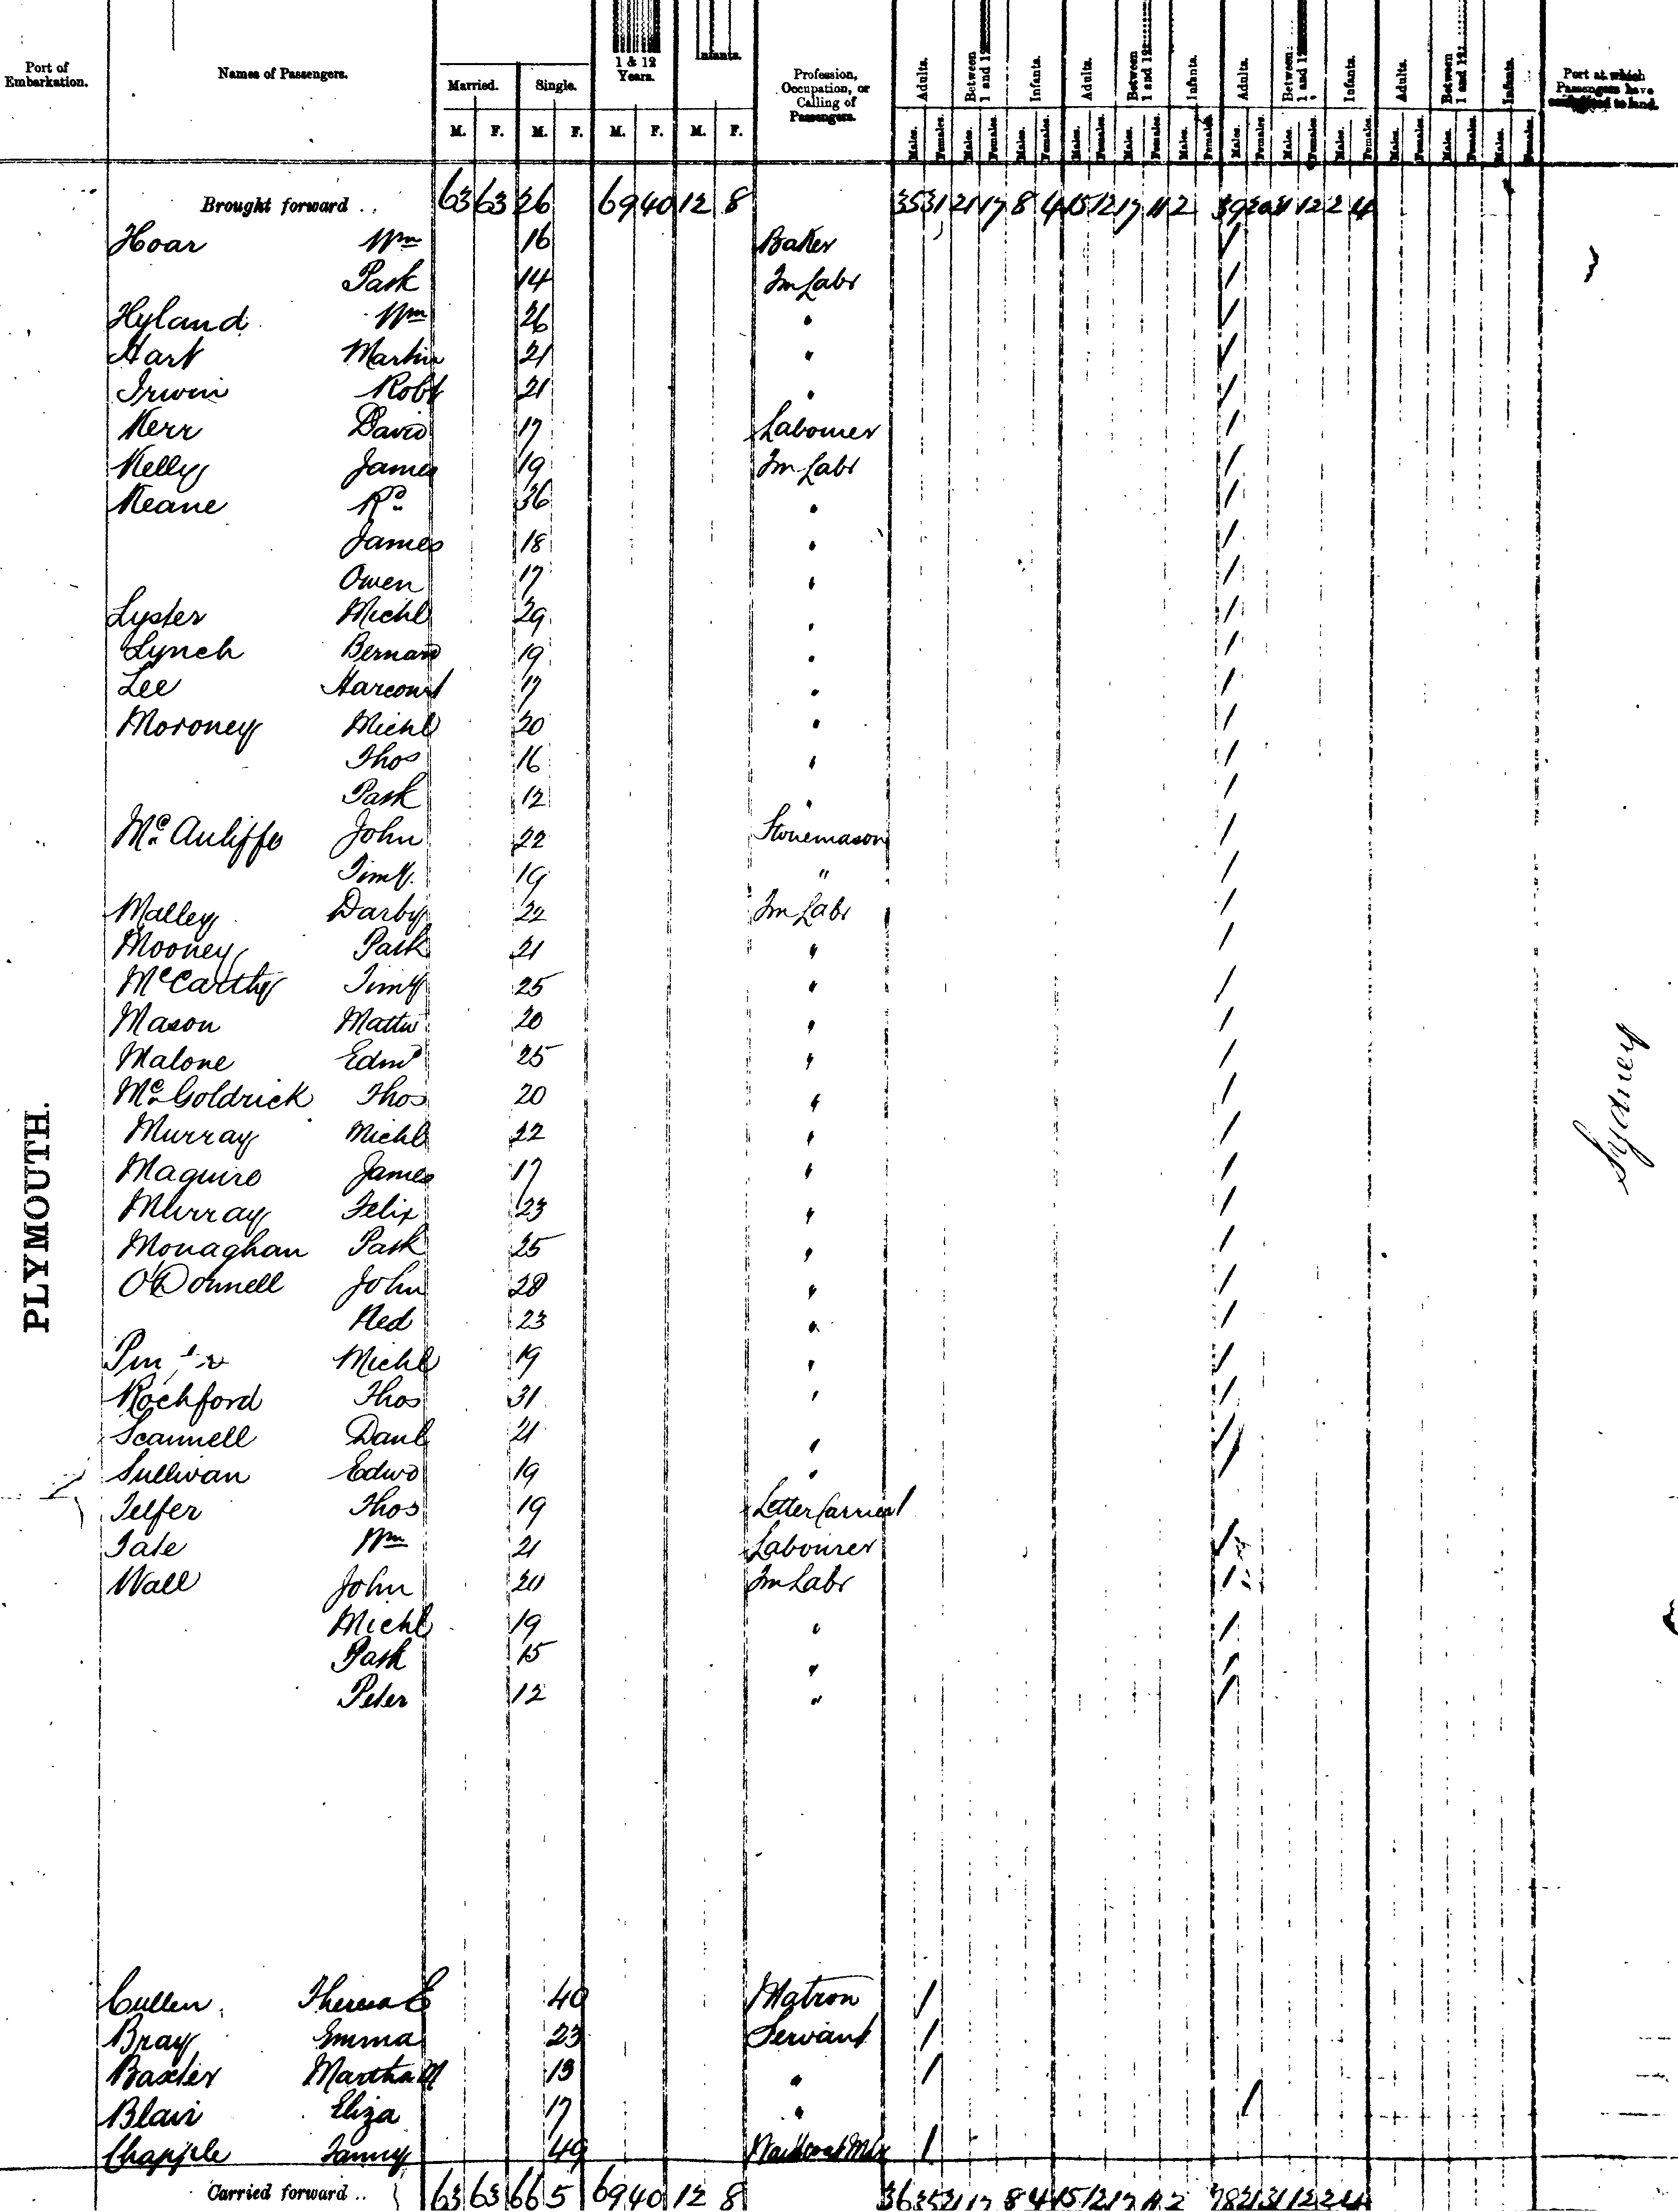 Port of Embarkation.
Names of Passengers.
Married. Single. 1 & 12 Years. Infants.
M. F. M. F. M. F. M. F.
Profession, Occupation, or Calling of Passengers.
Adults. Between 1 and 12 Infants. Adults. Between 1 and 12 Infants. Adults. Between 1 and 12 Infants. Adults. Between 1 and 12 Infants.
Males. Females. Males. Females. Males. Females. Males. Females. Males. Females. Males. Females. Males. Females. Males. Females. Males. Females. Males. Females. Males. Females. Males. Females.
Port at which Passengers have to land.
Brought forward .. 63 63 26 69 40 12 8 35 31 21 17 8 4 15 12 17 11 2 39 20 31 12 2 4
Hoar Wm 16 Baker /
Patk 14 Fm Labr /
Hyland Wm 26 " /
Hart Martin 21 " /
Irwin Robt 21 " /
Kerr David 17 Labourer /
Kelly James 19 Fm Labr /
Keane Rd 36 " /
James 18 " /
Owen 17 " /
Lyster Michl 29 " /
Lynch Bernard 19 " /
Lee Harcourt 17 " /
Moroney Michl 20 " /
Thos 16 " /
Patk 12 " /
Mc Auliffe John 22 Stonemason /
Timy. 19 " /
Malley Darby 22 Fm Labr /
Mooney Patk 21 " /
McCarthy Timy 25 " /
Mason Mattw 20 " /
Malone Edmd 25 " /
Mc Goldrick Thos 20 " /
Murray Michl 22 " /
Maguire James 17 " /
Murray Felix 23 " /
Monaghan Patk 25 " /
O'Donnell John 28 " /
Ned 23 " /
Michl 19 " /
Rochford Thos 31 " /
Scannell Danl 21 " /
Sullivan Edwd 19 " /
Telfer Thos 19 Letter Carrier /
Tate Wm 21 Labourer /
Wall John 20 Fm Labr /
Michl 19 " /
Patk 15 " /
Peter 12 " /
PLYMOUTH.
Sydney
Cullen Theresa E 40 Matron /
Bray Emma 23 Servant /
Baxter Martha M 13 " /
Blair Eliza 17 " /
Chapple Fanny 49 /
Carried forward .. 63 63 66 5 69 40 12 8 36 35 21 17 8 4 15 12 17 11 2 78 21 31 12 2 4